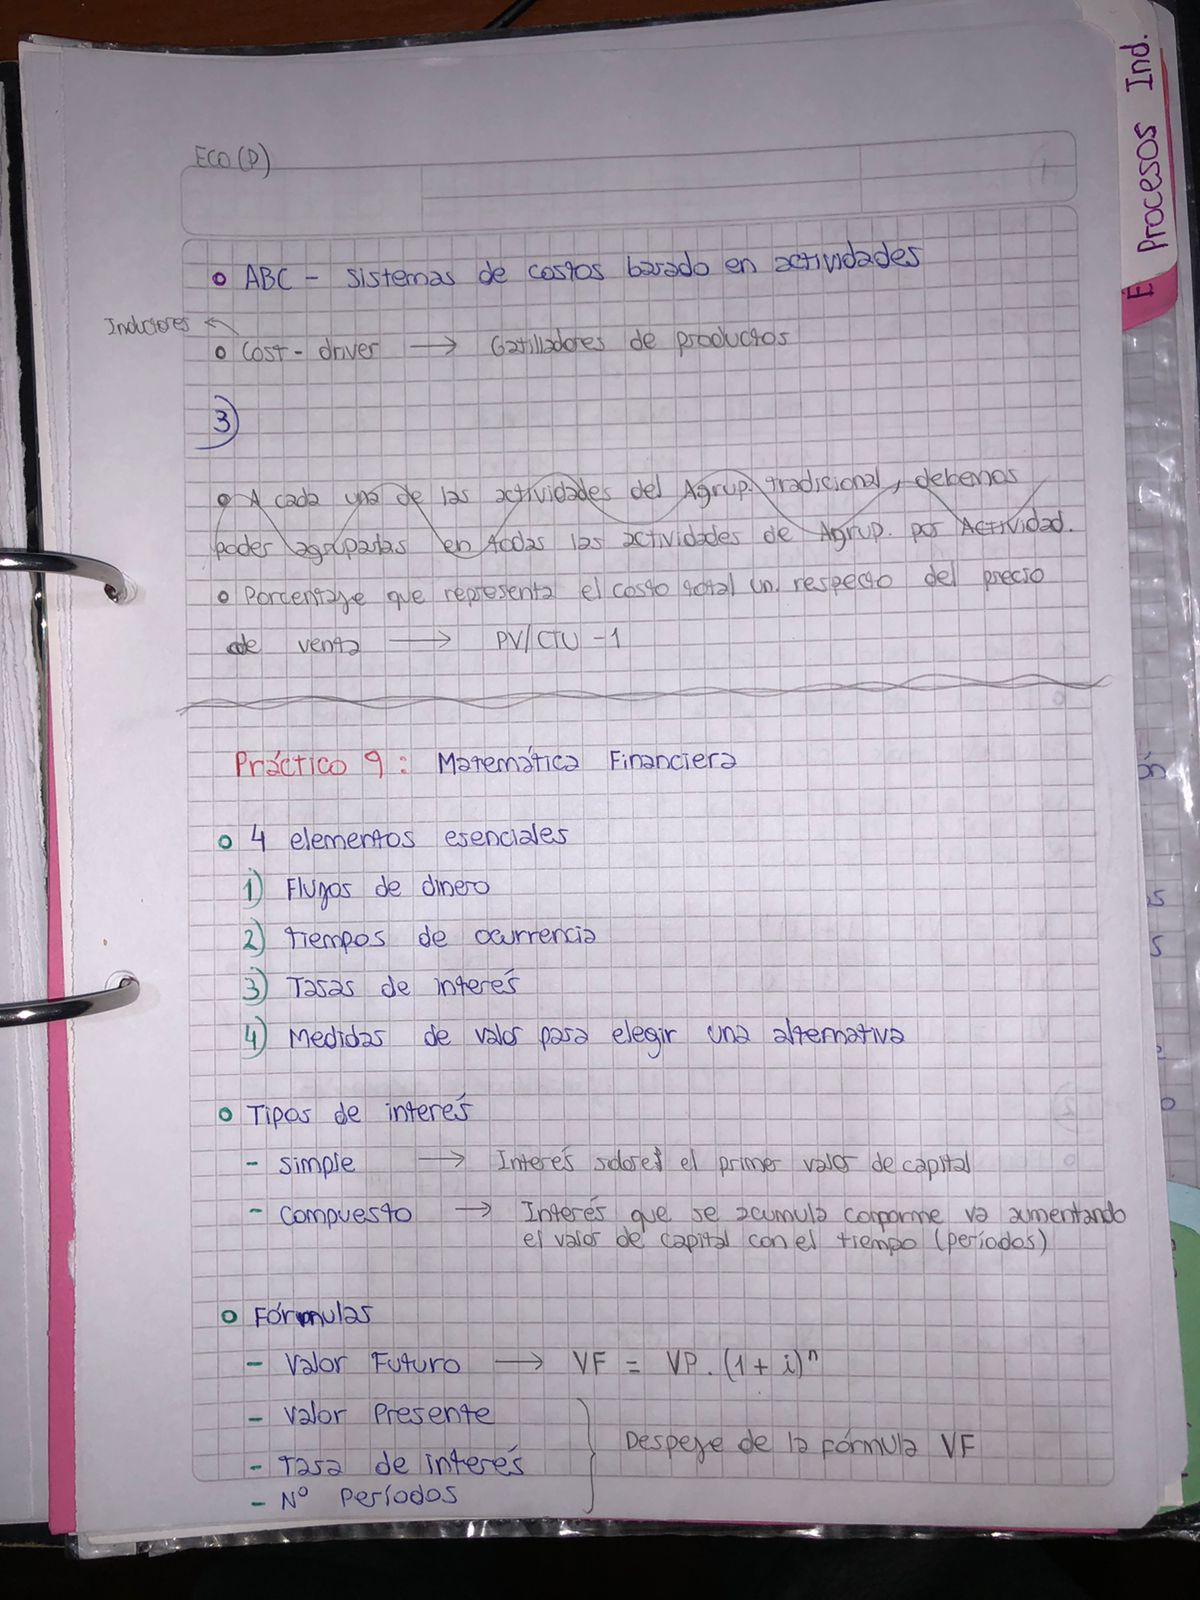 ECO(P)
E Procesos Ind.
• ABC - Sistemas de costos basado en actividades
Inductores ←
• Cost-driver → Gatilladores de productos
3)
• A cada una de las actividades del Agrup. tradicional, debemos
poder agruparlas en todas las actividades de Agrup. por Actividad.
• Porcentaje que representa el costo total un. respecto del precio
de venta → PV/CTU -1
Práctico 9: Matemática Financiera
• 4 elementos esenciales
1) Flujos de dinero
2) tiempos de ocurrencia
3) Tasas de interés
4) Medidas de valor para elegir una alternativa
• Tipos de interés
- Simple → Interés sobre el primer valor de capital
- Compuesto → Interés que se acumula conforme va aumentando
el valor de capital con el tiempo (períodos)
• Fórmulas
- Valor Futuro → VF = VP . (1 + i)ⁿ
- Valor Presente
- Tasa de interés } Despeje de la fórmula VF
- N° Períodos